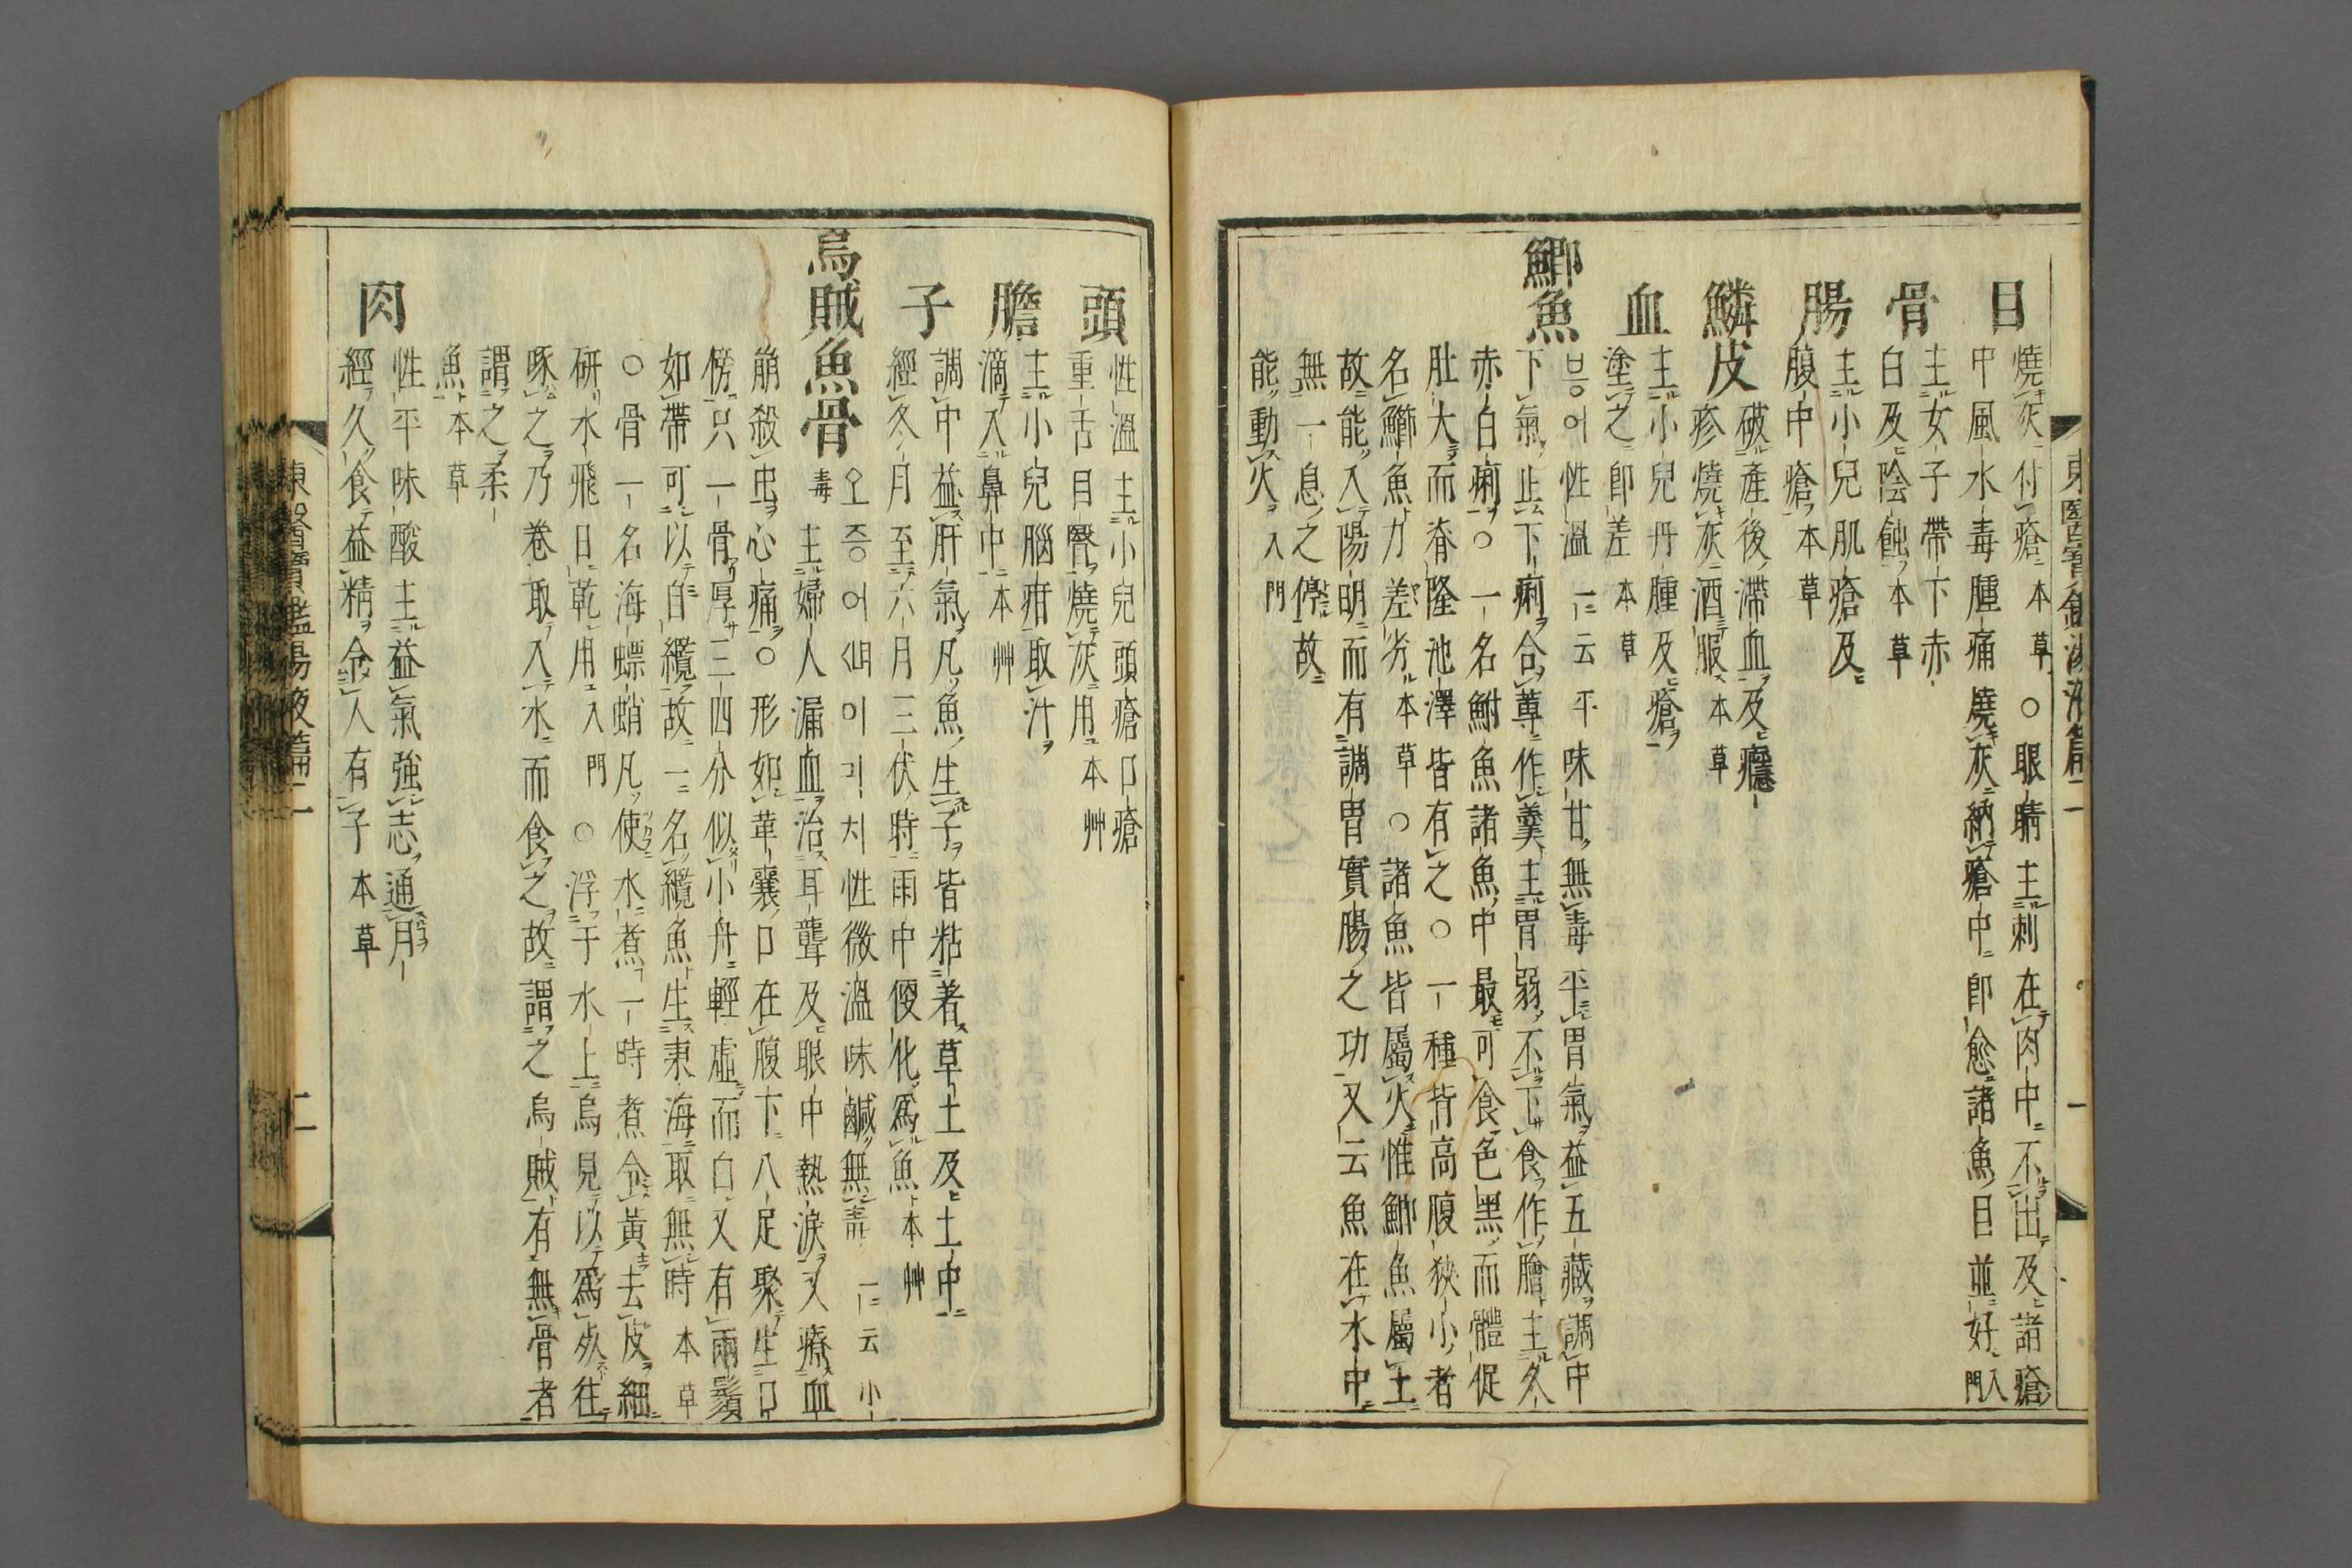 東醫寶鑑湯液篇二
一
目
燒灰付瘡本草○眼睛主刺在肉中不出及諸瘡
中風水毒腫痛燒灰納瘡中卽愈諸魚目並好入門
骨
主女子帶下赤
白及陰蝕本草
腸
主小兒肌瘡及
腹中瘡本草
鱗皮
破產後滯血及癮
疹燒灰酒服本草
血
主小兒丹腫及瘡
塗之卽差本草
鯽魚
브ᇰ어性溫一云平味甘無毒平胃氣益五藏調中
下氣止下痢合蓴作羹主胃弱不下食作膾主久
赤白痢○一名鮒魚諸魚中最可食色黑而體促
肚大而脊隆池澤皆有之○一種背高腹狹小者
名鰤魚力差劣本草○諸魚皆屬火惟鯽魚屬土
故能入陽明而有調胃實腸之功又云魚在水中
無一息之停故
能動火入門
頭
性溫主小兒頭瘡口瘡
重舌目瞖燒灰用本艸
膽
主小兒腦疳取汁
滴入鼻中本艸
子
調中益肝氣凡魚生子皆粘着草土及土中
經久月至六月三伏時雨中便化爲魚本艸
烏賊魚骨
오즈ᇰ어ᄲᅧ미긔치性微溫味鹹無毒一云小
毒主婦人漏血治耳聾及眼中熱淚又療血
崩殺虫心痛○形如革囊口在腹下八足聚生口
傍只一骨厚三四分似小舟輕虛而白又有兩鬚
如帶可以自纜故一名纜魚生東海取無時本草
○骨一名海螵蛸凡使水煮一時煮令黃去皮細
研水飛日乾用入門○浮于水上烏見以爲死往
啄之乃卷取入水而食之故謂之烏賊有無骨者
謂之柔
魚本草
肉
性平味酸主益氣強志通月
經久食益精令人有子本草
東醫寶鑑湯液篇二
二